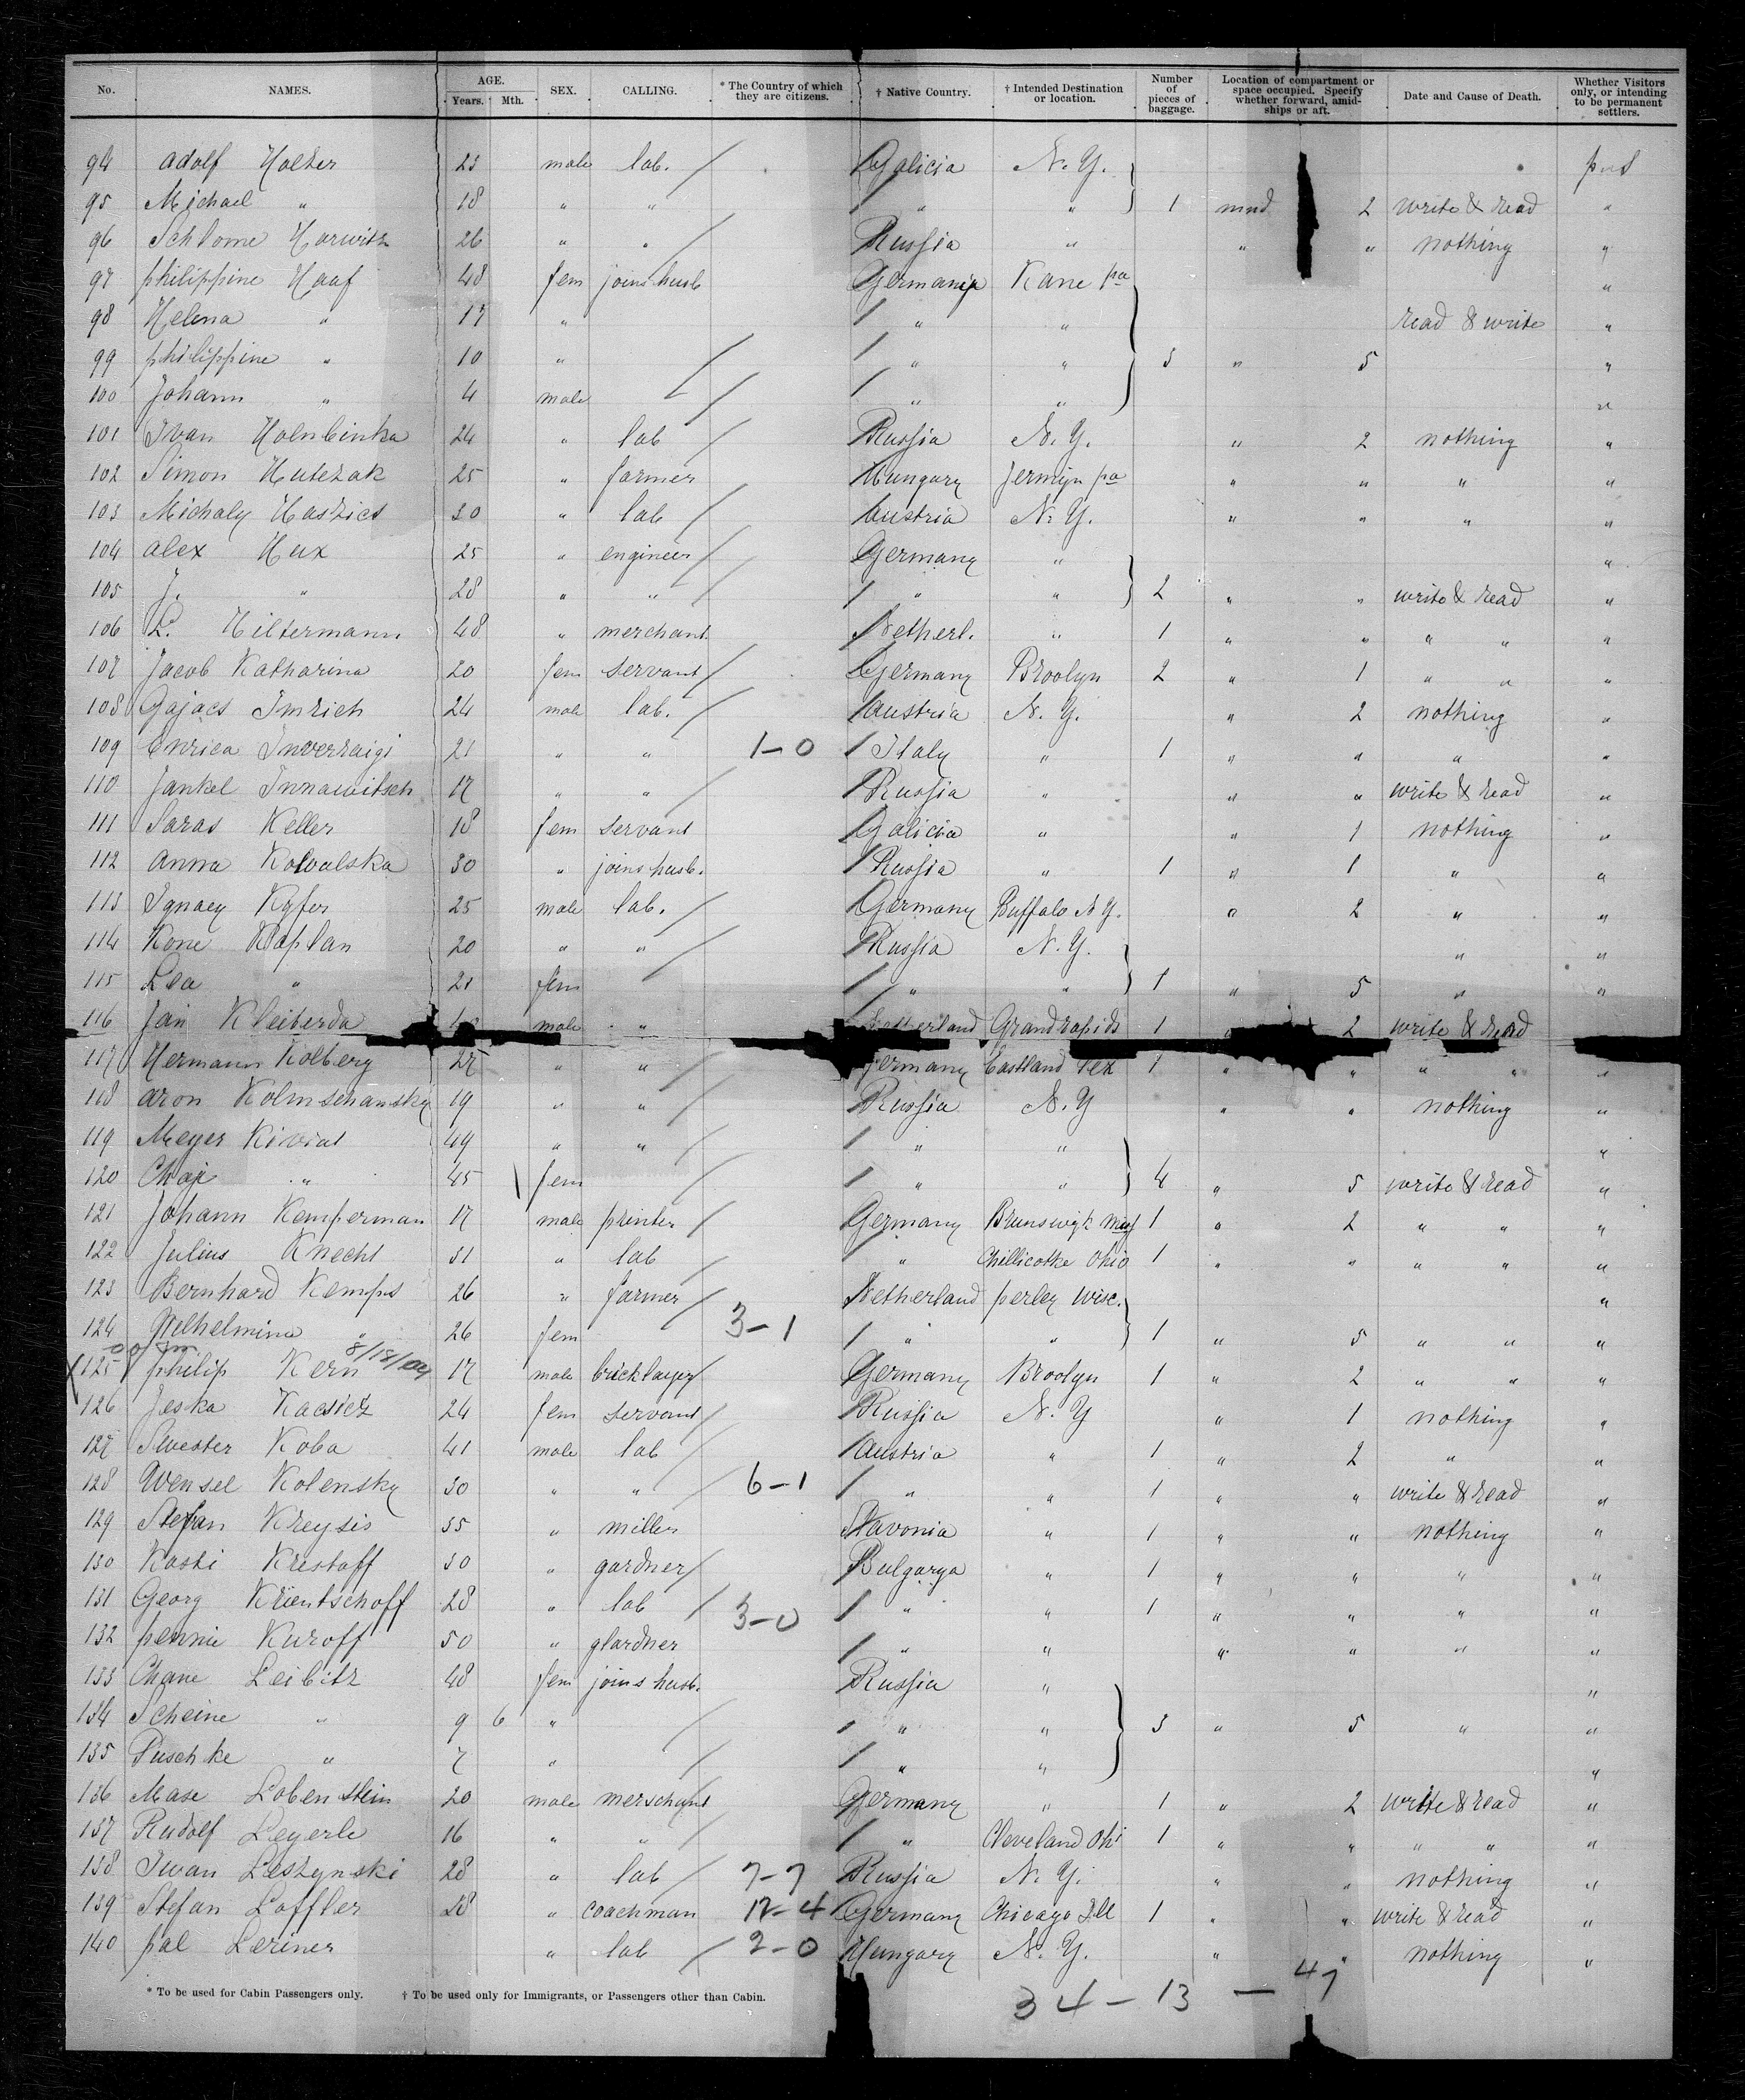 No. NAMES. AGE. Years. Mth. SEX. CALLING. * The Country of which they are citizens. † Native Country. † Intended Destination or location. Number of pieces of baggage. Location of compartment or space occupied. Specify whether forward, amidships or aft. Date and Cause of Death. Whether Visitors only, or intending to be permanent settlers.
94 Adolf Holzer 23 male lab. / Galicia N. Y.
95 Michael " 18 " " / " " 1 mid 2 write & read "
96 Schlome Horwitz 26 " " / Russia " " " nothing "
97 philippine Haaf 48 fem joins husb Germany Kane pa "
98 Helena " 17 " / " " read & write "
99 philippine " 10 " / / " " 3 " 5 "
100 Johann " 4 male / / " " "
101 Ivan Holubinka 24 " lab / Russia N. Y. " 2 nothing "
102 Simon Hutezak 25 " farmer Hungary Jermyn pa " " " "
103 Michaly Haszics 30 " lab / Austria N. Y. " " " "
104 Alex Hux 25 " engineer / Germany " "
105 J. " 28 " " / / " " 2 " " write & read "
106 L. Hiltermann 48 " merchant Netherl. " 1 " " " " "
107 Jacob Katharina 20 fem servant / Germany Broolyn 2 " 1 " " "
108 Gajacs Imrich 24 male lab. / Austria N. Y. " 2 nothing "
109 Enrica Inverraigi 21 " " 1-0 / Italy " 1 " " " "
110 Jankel Innawitsch 17 " " / Russia " " " write & read "
111 Saras Keller 18 fem servant Galicia " " 1 nothing "
112 Anna Kowalska 30 " joins husb. / Russia " 1 " 1 " "
113 Ignacy Kyfer 25 male lab. / Germany Buffalo N Y. " 2 " "
114 Kone Kaplan 20 " " / Russia N. Y. " "
115 Lea " 21 fem / / " " 1 " 5 " "
116 Jan Kleiberda male " Netherland Grand rapids 1 " 2 write & read
117 Hermann Kolberg 27 " " / Germany Eastland Tex 1 " " " " "
118 Aron Kolmschansky 19 " " / Russia N. Y " " nothing "
119 Meyer Kiviat 49 " " / / " " "
120 Chaje " 45 fem / / " " 4 " 5 write & read "
121 Johann Kemperman 17 male printer / Germany 1 " 2 " " "
122 Julius Knecht 31 " lab / / " Chillicothe Ohio 1 " " " " "
123 Bernhard Kemps 26 " farmer / Netherland perley Wisc. "
124 Wilhelmina " 26 fem 3-1 / " " 1 " 5 " " "
8/18/04
125 philip Kern 17 male bricklayer / Germany Broolyn 1 " 2 " " "
126 Jeska Kacsiez 24 fem servant / Russia N. Y " 1 nothing "
127 Silvester Koba 41 male lab / Austria " 1 " 2 " "
128 Wensel Kolensky 30 " " / 6-1 / " " 1 " " write & read "
129 Stefan Kreysis 35 " miller Slavonia " 1 " " nothing "
130 Kosti Kristoff 30 " gardner / Bulgarya " 1 " " " "
131 Georg Krientschoff 28 " lab / 3-0 / " " 1 " " " "
132 pennie Kuroff 50 " glardner / " " " " " "
133 Chane Leibitz 48 fem joins husb. Russia " "
134 Scheine " 9 6 " / / " " 3 " 5 " "
135 Puschke " 7 " / / " " "
136 Mase Lobenstein 20 male merschant Germany " 1 " 2 write & read "
137 Rudolf Leyerle 16 " " / " Cleveland Ohi 1 " " " " "
138 Iwan Leszynski 28 " lab / 7-7 Russia N. Y. " " nothing "
139 Stefan Loffler 28 " coachman 12-4 Germany Chicago Ill 1 " " write & read "
140 pal Leriner " lab / 2-0 Hungary N. Y. " " nothing "
* To be used for Cabin Passengers only. † To be used only for Immigrants, or Passengers other than Cabin.
34 - 13 - 47